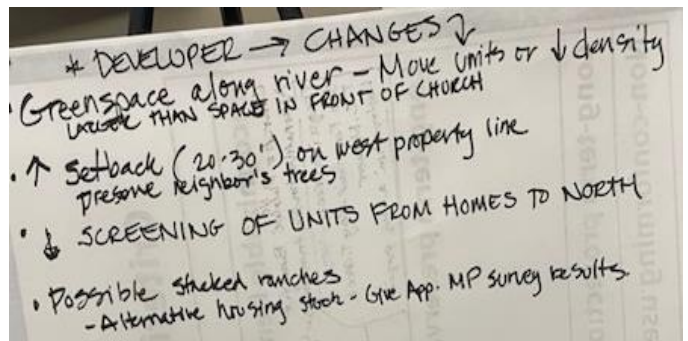 * DEVELOPER → CHANGES ↓
• Greenspace along river - Move units or ↓ density
LARGER THAN SPACE IN FRONT OF CHURCH
• ↑ Setback (20-30') on west property line
preserve neighbor's trees
• ↓ SCREENING OF UNITS FROM HOMES TO NORTH
• Possible stacked ranches
- Alternative housing stock - Give App. MP survey results.